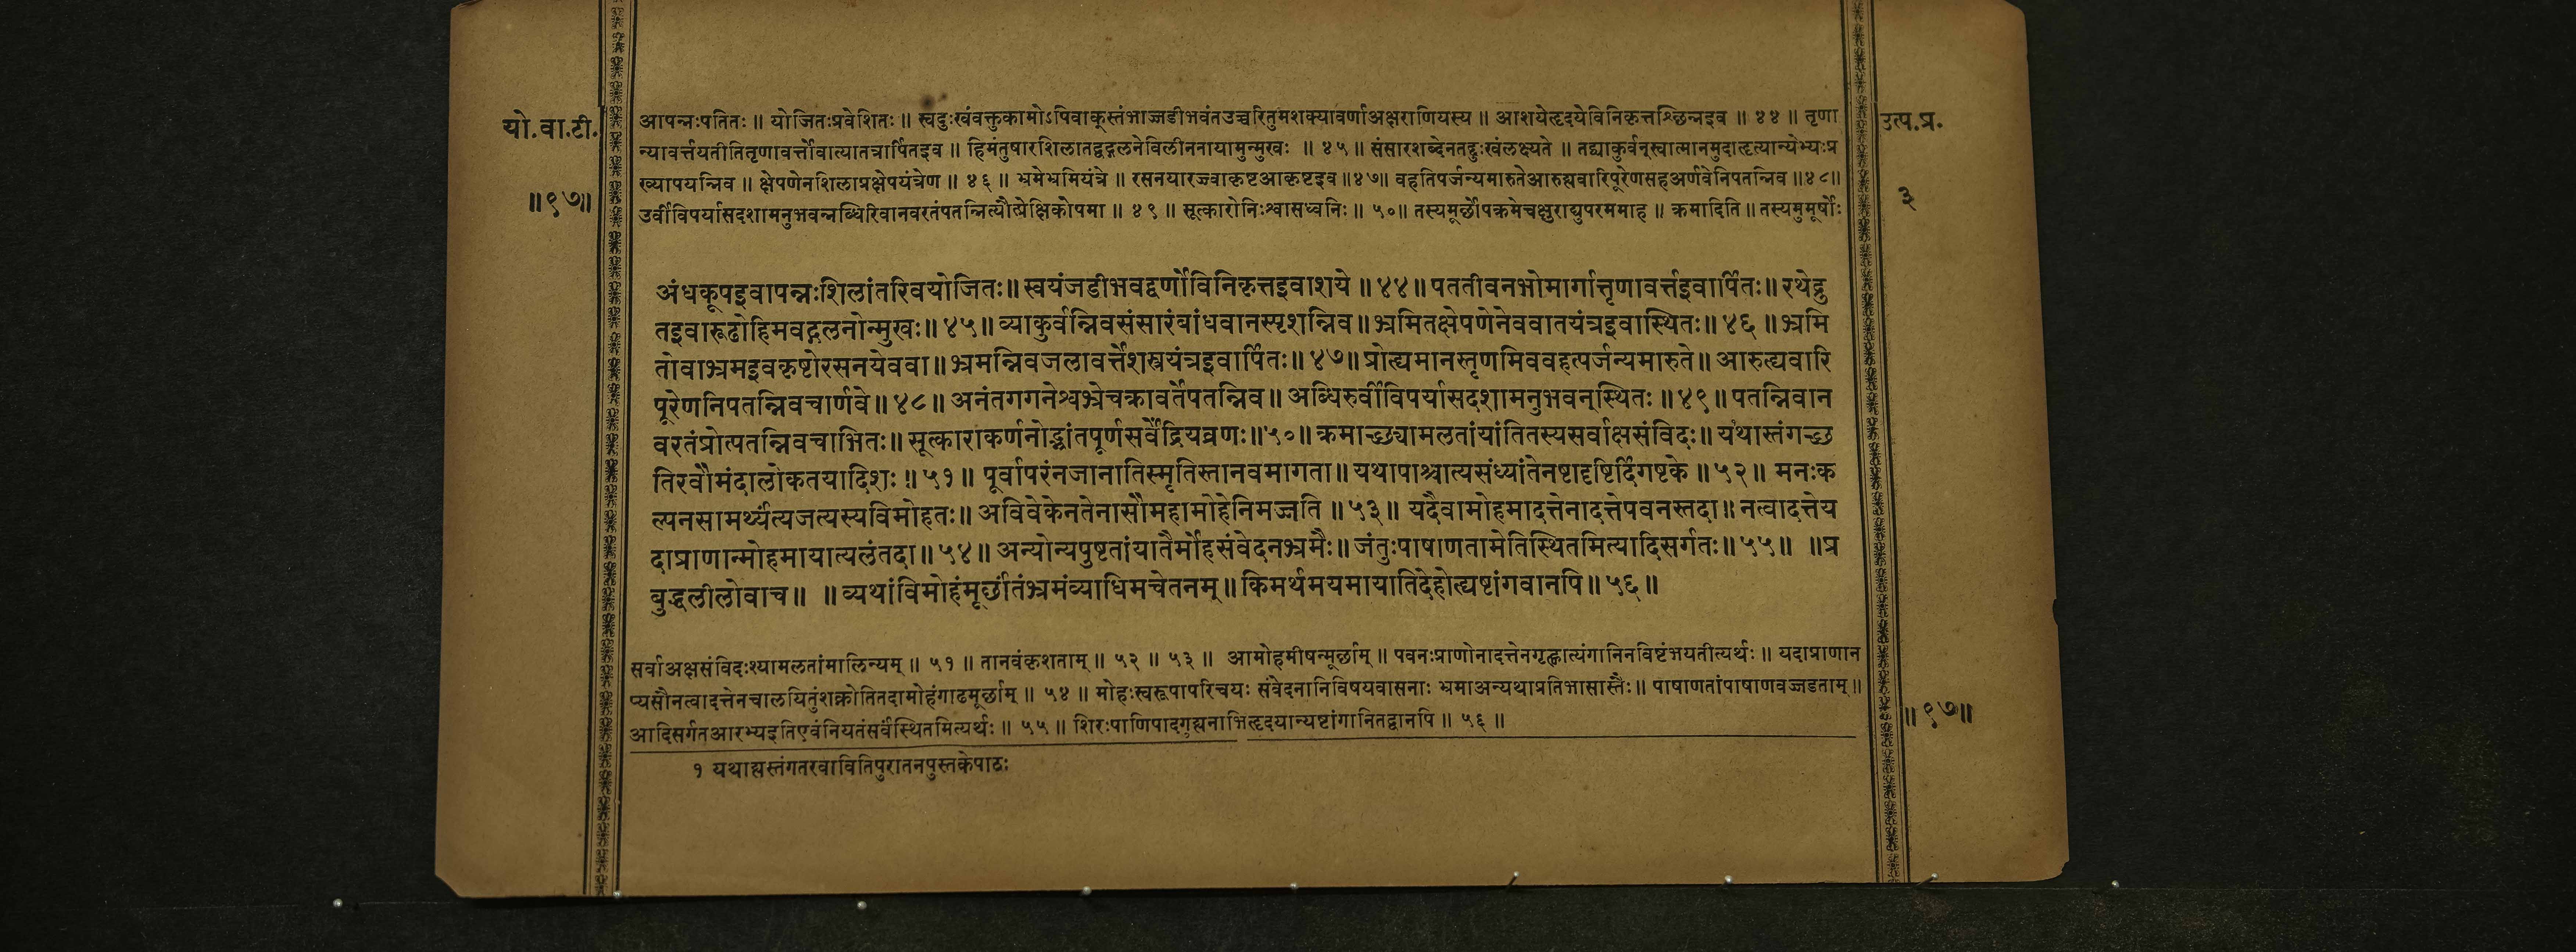 यो.वा.टी.
॥९७॥
आपन्नःपतितः ॥ योजितःप्रवेशितः ॥ स्वदुःखंवक्तुकामोऽपिवाक्स्तंभाज्जडीभवंतउच्चरितुमशक्यावर्णाअक्षराणियस्य ॥ आशयेहृदयेविनिकृत्तश्छिन्नइव ॥ ४४ ॥ तृणा
न्यावर्त्तयतीतितृणावर्त्तोवात्यातत्रार्पितइव ॥ हिमंतुषारशिलातद्वद्गलनेविलीननायामुन्मुखः ॥ ४५ ॥ संसारशब्देनतद्दुःखंलक्ष्यते ॥ तद्व्याकुर्वन्स्वात्मानमुदाहृत्यान्येभ्यःप्र
ख्यापयन्निव ॥ क्षेपणेनशिलाप्रक्षेपयंत्रेण ॥ ४६ ॥ भ्रमेभ्रमियंत्रे ॥ रसनयारज्ज्वाकृष्टआकृष्टइव ॥४७॥ वहतिपर्जन्यमारुतेआरुह्यवारिपूरेणसहअर्णवेनिपतन्निव ॥४८॥
उर्वीविपर्यासदशामनुभवन्नब्धिरिवानवरतंपतन्नित्यौत्प्रेक्षिकोपमा ॥ ४९ ॥ सूत्कारोनिःश्वासध्वनिः ॥ ५०॥ तस्यमूर्छोपक्रमेचक्षुराद्युपरममाह ॥ क्रमादिति ॥ तस्यमुमूर्षोः
अंधकूपइवापन्नःशिलांतरिवयोजितः॥ स्वयंजडीभवद्वर्णोविनिकृत्तइवाशये ॥ ४४॥ पततीवनभोमार्गात्तृणावर्त्तइवार्पितः॥ रथेद्रु
तइवारूढोहिमवद्गलनोन्मुखः॥ ४५॥ व्याकुर्वन्निवसंसारंबांधवानस्पृशन्निव॥ भ्रमितक्षेपणेनेववातयंत्रइवास्थितः॥ ४६ ॥ भ्रमि
तोवाभ्रमइवकृष्टोरसनयेववा॥ भ्रमन्निवजलावर्त्तेशस्त्रयंत्रइवार्पितः॥ ४७॥ प्रोत्द्यमानस्तृणमिववहत्पर्जन्यमारुते॥ आरुत्द्यवारि
पूरेणनिपतन्निवचार्णवे॥ ४८॥ अनंतगगनेश्वभ्रेचक्रावर्तेपतन्निव॥ अब्धिरुर्वीविपर्यासदशामनुभवन्स्थितः॥ ४९॥ पतन्निवान
वरतंप्रोत्पतन्निवचाभितः॥ सूत्काराकर्णनोद्भ्रांतपूर्णसर्वेंद्रियव्रणः॥५०॥ क्रमाच्छ्यामलतांयांतितस्यसर्वाक्षसंविदः॥ यथास्तंगच्छ
तिरवौमंदालोकतयादिशः ॥ ५१॥ पूर्वापरंनजानातिस्मृतिस्तानवमागता॥ यथापाश्चात्यसंध्यांतेनष्टादृष्टिर्दिगष्टके॥ ५२॥ मनःक
ल्पनसामर्थ्यंत्यजत्यस्यविमोहतः॥ अविवेकेनतेनासौमहामोहेनिमज्जति ॥ ५३॥ यदैवामोहमादत्तेनादत्तेपवनस्तदा॥ नत्वादत्तेय
दाप्राणान्मोहमायात्यलंतदा॥ ५४॥ अन्योन्यपुष्टतांयातैर्मोहसंवेदनभ्रमैः॥ जंतुःपाषाणतामेतिस्थितमित्यादिसर्गतः॥ ५५॥ ॥प्र
बुद्धलीलोवाच॥ ॥ व्यथांविमोहंमूर्छांतंभ्रमंव्याधिमचेतनम्॥ किमर्थमयमायातिदेहोत्द्यष्टांगवानपि॥ ५६॥
सर्वाअक्षसंविदःश्यामलतांमालिन्यम् ॥ ५१ ॥ तानवंकृशताम् ॥ ५२ ॥ ५३ ॥ आमोहमीषन्मूर्छाम् ॥ पवनःप्राणोनादत्तेनगृह्णात्यंगानिनविष्टंभयतीत्यर्थः ॥ यदाप्राणान
प्यसौनत्वादत्तेनचालयितुंशक्नोतितदामोहंगाढमूर्छाम् ॥ ५४ ॥ मोहःस्वरूपापरिचयः संवेदनानिविषयवासनाः भ्रमाअन्यथाप्रतिभासास्तैः॥ पाषाणतांपाषाणवज्जडताम्॥
आदिसर्गतआरभ्यइतिएवंनियतंसर्वंस्थितमित्यर्थः ॥ ५५ ॥ शिरःपाणिपादगुह्यनाभिहृदयान्यष्टांगानितद्वानपि ॥ ५६ ॥
१ यथाह्यस्तंगतरवावितिपुरातनपुस्तकेपाठः
उत्प.प्र.
३
॥९७॥